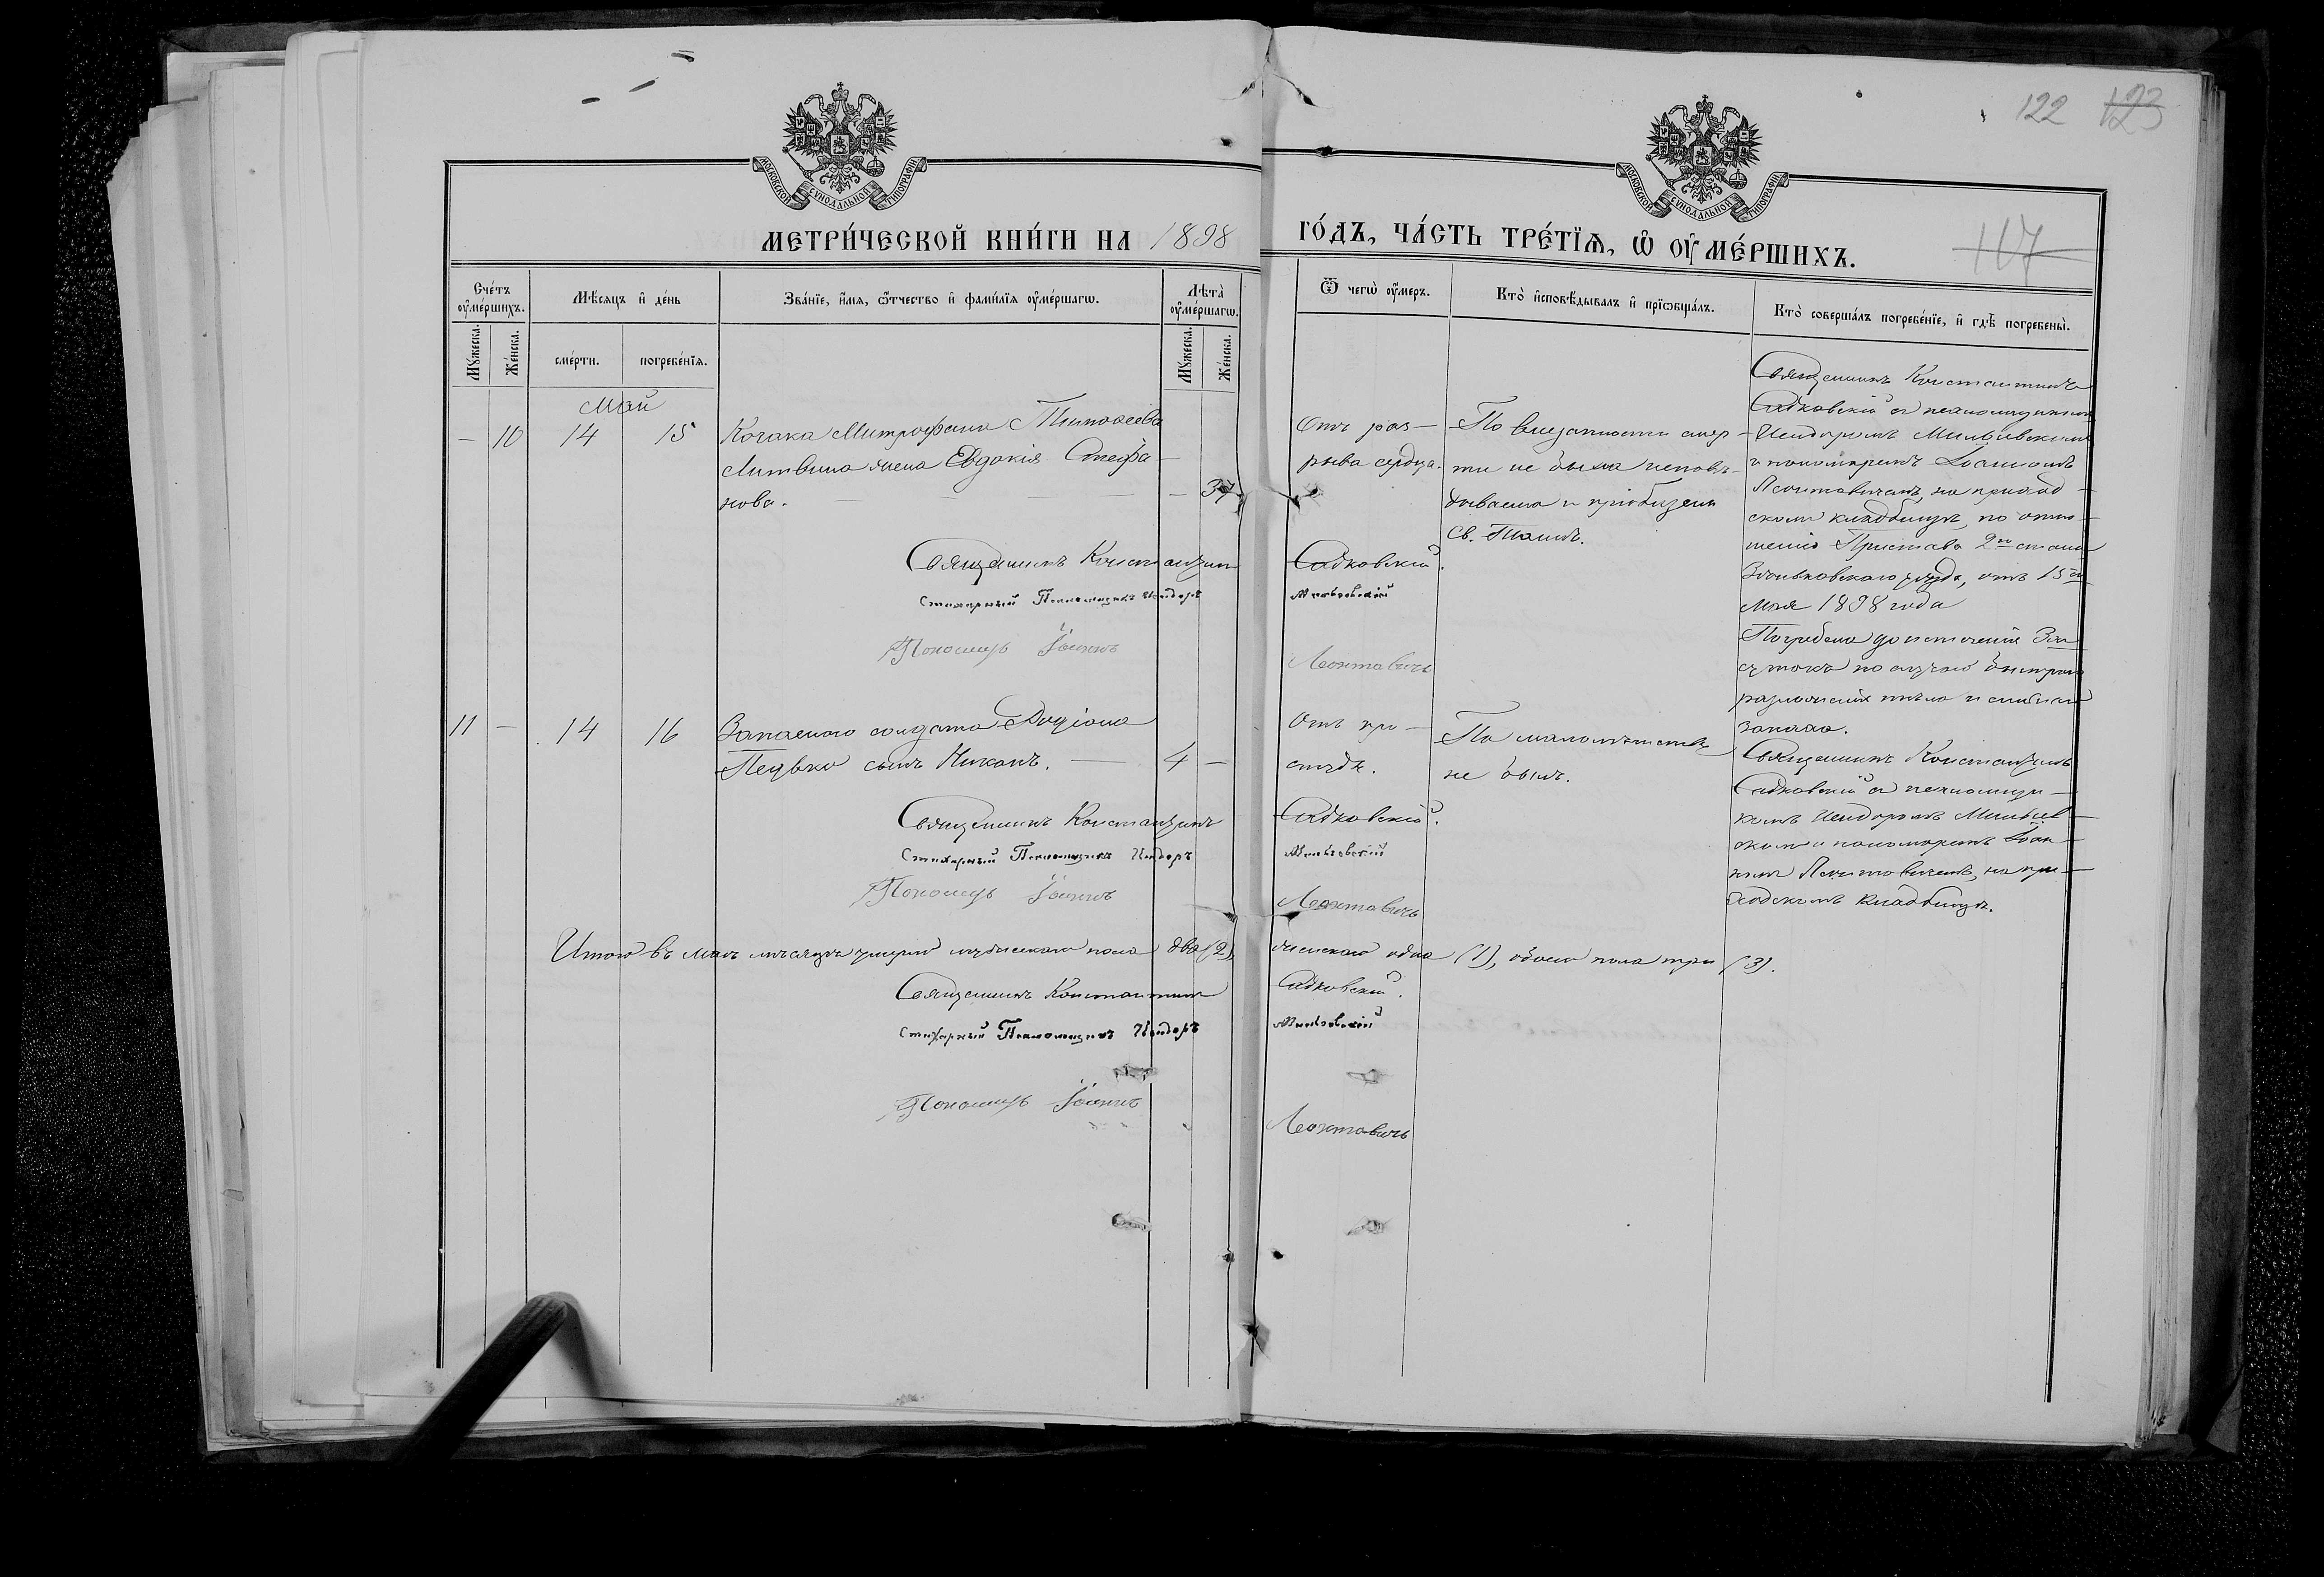 122 123
117
МОСКОВСКОЙ СѴНОДАЛЬНОЙ ТИПОГРАФІИ
МОСКОВСКОЙ СѴНОДАЛЬНОЙ ТИПОГРАФІИ
МЕТРИ́ЧЕСКОЙ КНИ́ГИ НА 1898 ГО́ДЪ, ЧА́СТЬ ТРЕ́ТЇѦ, Ѡ҆ ОУ҆МЕ́РШИХЪ.
Сче́тъ оу҆ме́ршихъ.
Мꙋ́жеска.
Же́нска.
Мѣ́сяцъ и҆ де́нь
сме́рти.
погребе́нїѧ.
Зва́нїе, и҆́мѧ, ѻ҆́тчество и҆ фамі́лїѧ оу҆ме́ршагѡ.
Лѣ̑та̀ оу҆ме́ршагѡ.
Мꙋ́жеска.
Же́нска.
Ѿ чегѡ̀ оу҆́меръ.
Кто̀ и҆сповѣ́дывалъ и҆ прїѡбща́лъ.
Кто̀ соверша́лъ погребе́нїе, и҆ гдѣ̀ погребены̀.
Май
— 10 14 15 Козака Митрофана Тимофеева
Литвина жена Евдокія Стефа-
нова. — — — — 37
Отъ раз-
рыва сердца.
По внезапности смер-
ти не была исповѣ-
дываема и пріобщена
Св. Таинъ.
Священникъ Константинъ
Садковскій съ псаломщикомъ
Исидоромъ
и пономаремъ Іоанномъ
Леонтовичемъ, на приход-
скомъ кладбищѣ, по отно-
шенію Пристава 2го стана
Зѣньковскаго уѣзда, отъ 15го
Мая 1898 года
Погребена до истеченія 3хъ
сутокъ по случаю быстраго
разложенія тѣла и
запаха.
Священникъ Константинъ Садковскій.
Стихарный Псаломщикъ Исидоръ
Пономарь Іоаннъ Леонтовичъ
11 — 14 16 Запаснаго солдата
сынъ Никонъ. — 4 —
Отъ про-
студы.
По малолѣтству
не былъ.
Священникъ Константинъ
Садковскій съ псаломщи-
комъ Исидоромъ
и пономаремъ Іоан-
номъ Леонтовичемъ, на при-
ходскомъ кладбищѣ.
Священникъ Константинъ Садковскій.
Стихарный Псаломщикъ Исидоръ
Пономарь Іоаннъ Леонтовичъ
Итого въ маѣ мѣсяцѣ умерло мужескаго пола два (2), женскаго одна (1), обоего пола три (3).
Священникъ Константинъ Садковскій.
Стихарный Псаломщикъ Исидоръ
Пономарь Іоаннъ Леонтовичъ